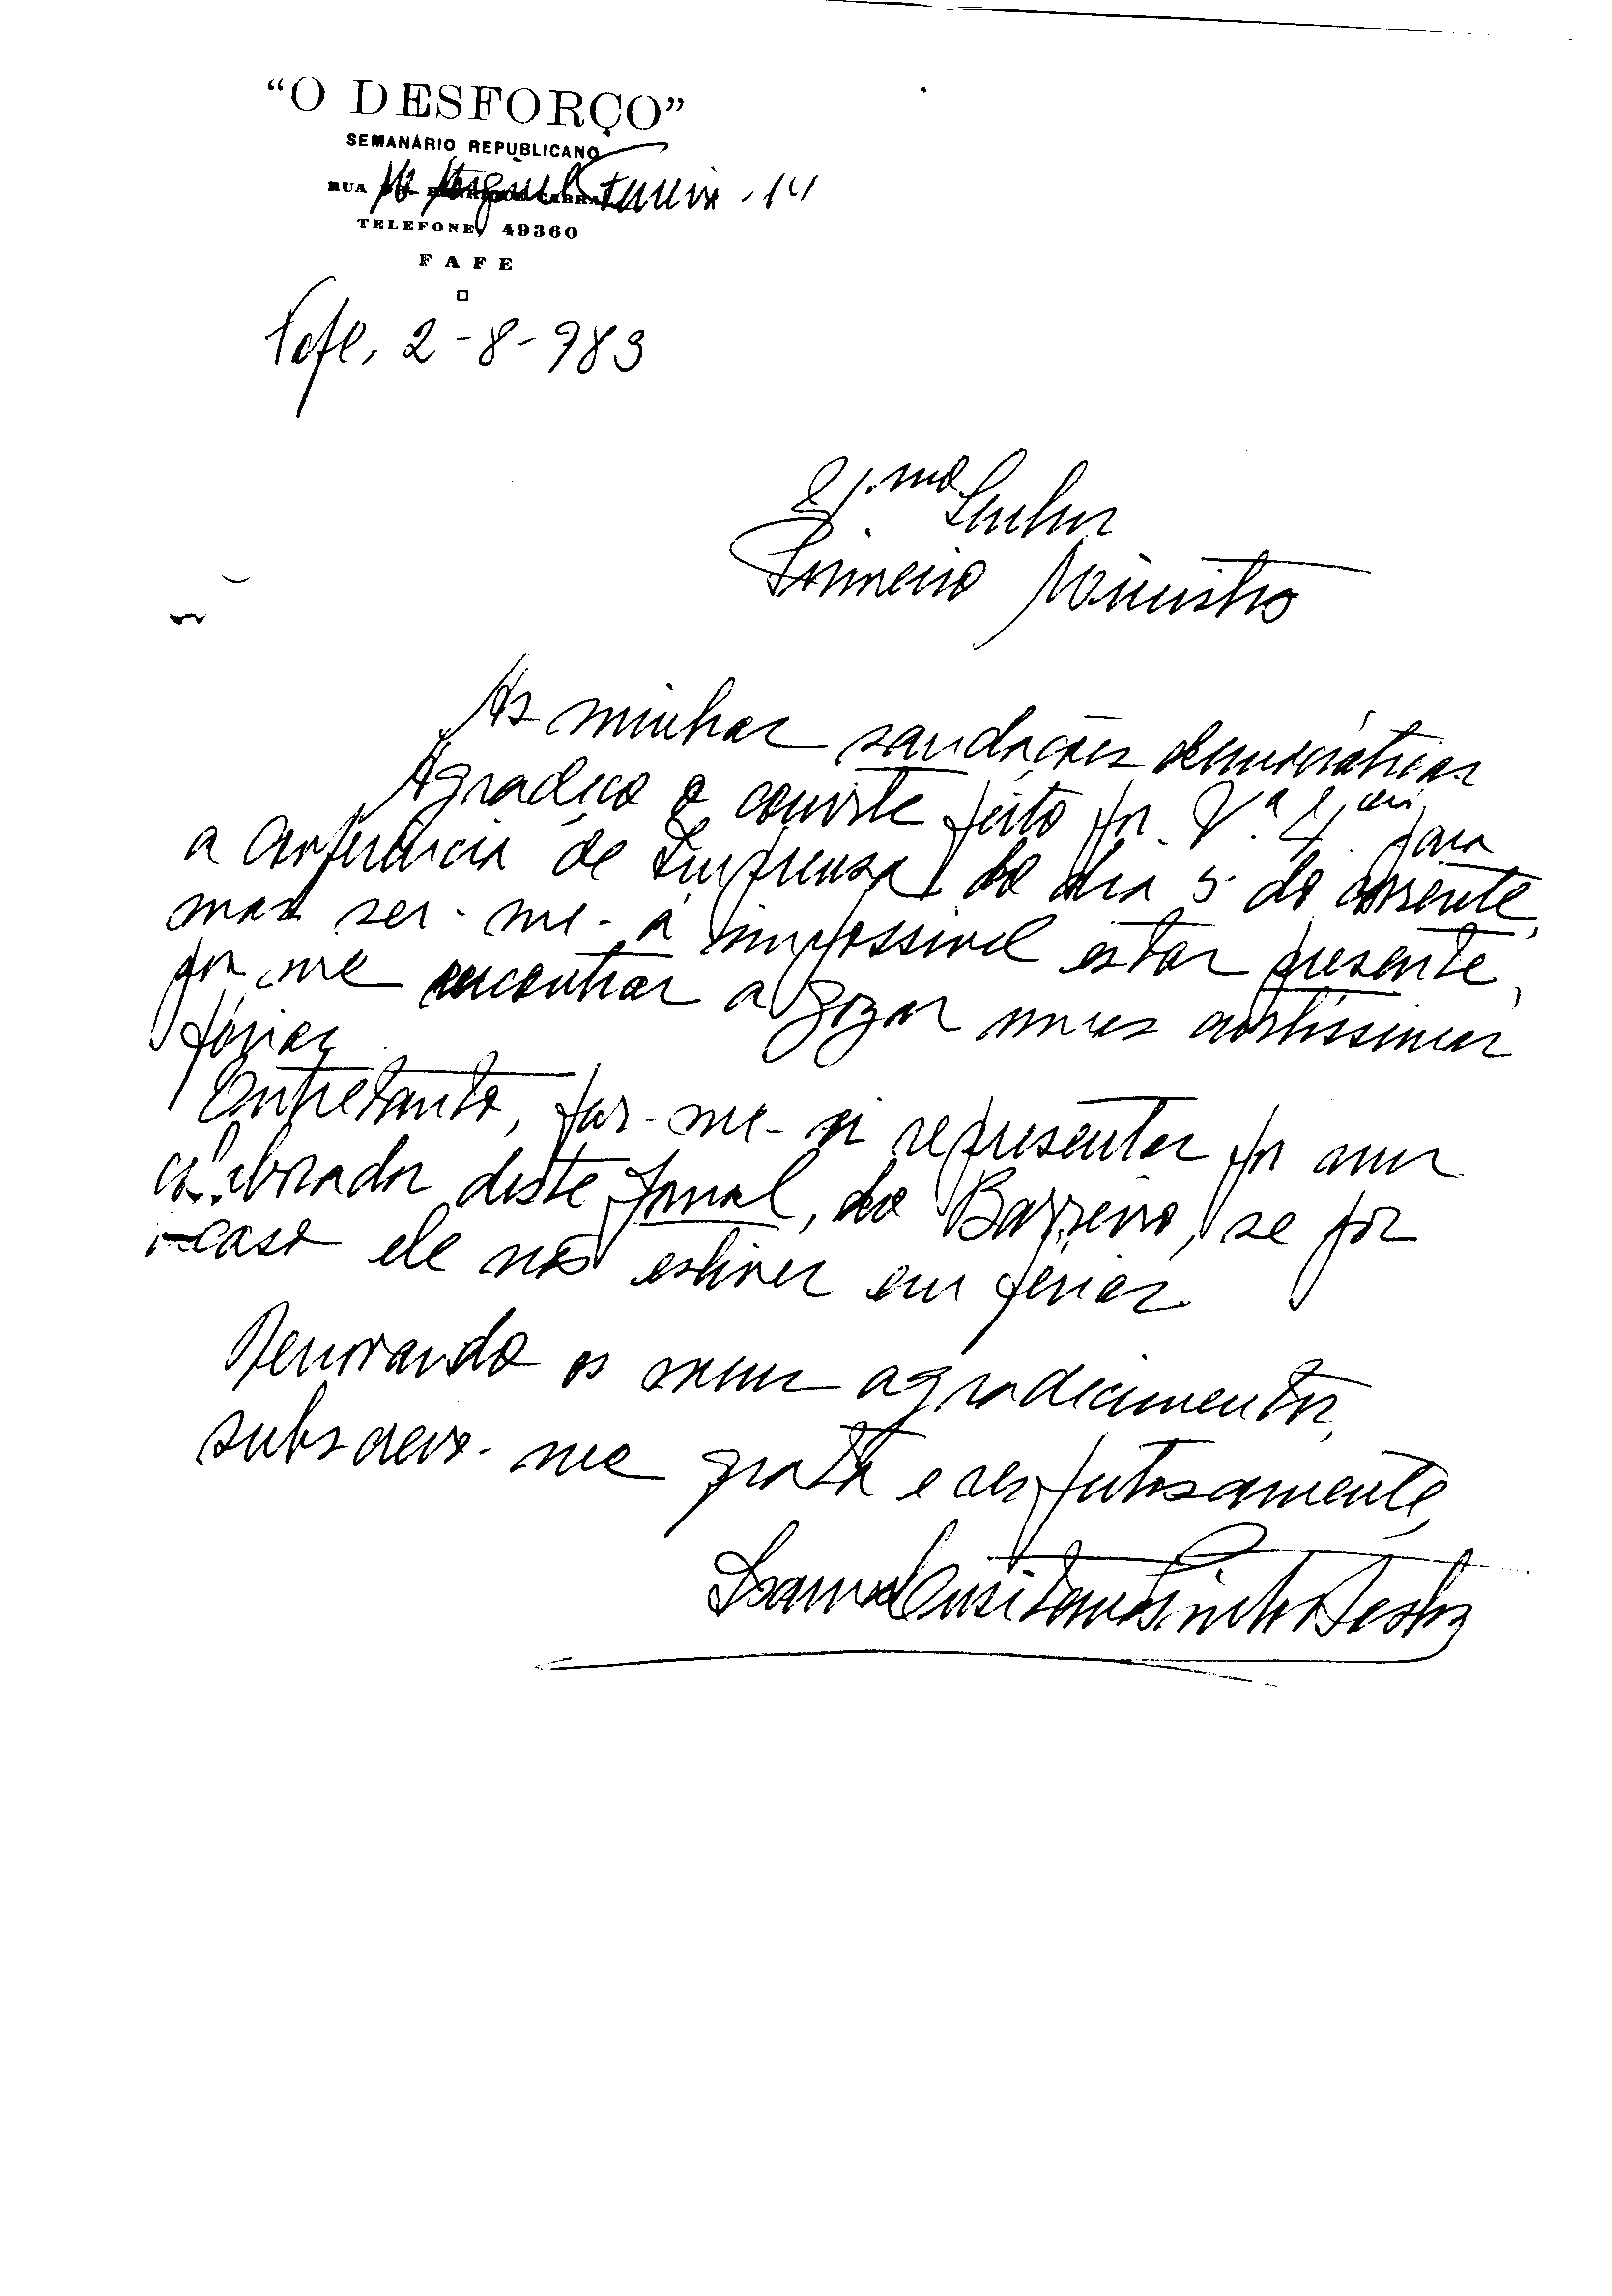 "O DESFORÇO"
SEMANÁRIO REPUBLICANO
RUA
TELEFONE, 49360
FAFE
Fafe, 2-8-983
Ex.mo Senhor
Primeiro Ministro
As minhas saudações democráticas
Agradeço o convite feito por V.ª Ex.cia, para
a Conferência de Imprensa do dia 5 do corrente,
mas ser-me-á impossível estar presente,
por me encontrar a gozar umas curtíssimas
férias.
Entretanto, far-me-ei representar por um
colaborador deste Jornal, do Barreiro, se por
acaso ele não estiver em férias.
Renovando os meus agradecimentos,
subscrevo-me grata e respeitosamente,
Pinto Bastos